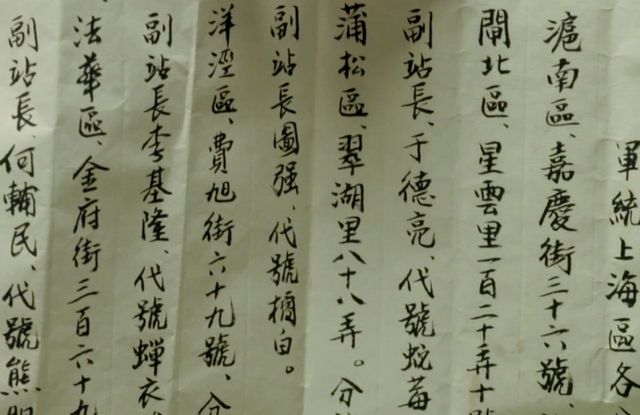 軍統上海區各
滬南區、嘉慶街三十六號
閘北區、星雲里一百二十弄十號
副站長、于德亮、代號蛇莓
蒲松區、翠湖里八十八弄。分
副站長圖强、代號檀白。
洋涇區、費旭街六十九號、分
副站長李基隆、代號蟬衣
法華區、金府街三百六十九
副站長、何輔民、代號熊胆